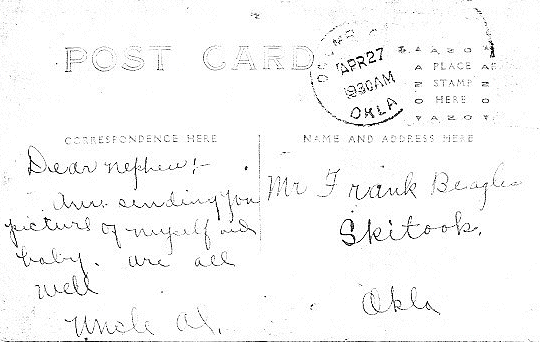 POST CARD
APR 27
1930 AM
OKLA
PLACE
STAMP
HERE
CORRESPONDENCE HERE
NAME AND ADDRESS HERE
Dear nephew!-
Am sending you
picture of myself and
baby. are all
well
Uncle Al.
Mr Frank Beagles
Skitook.
Okla